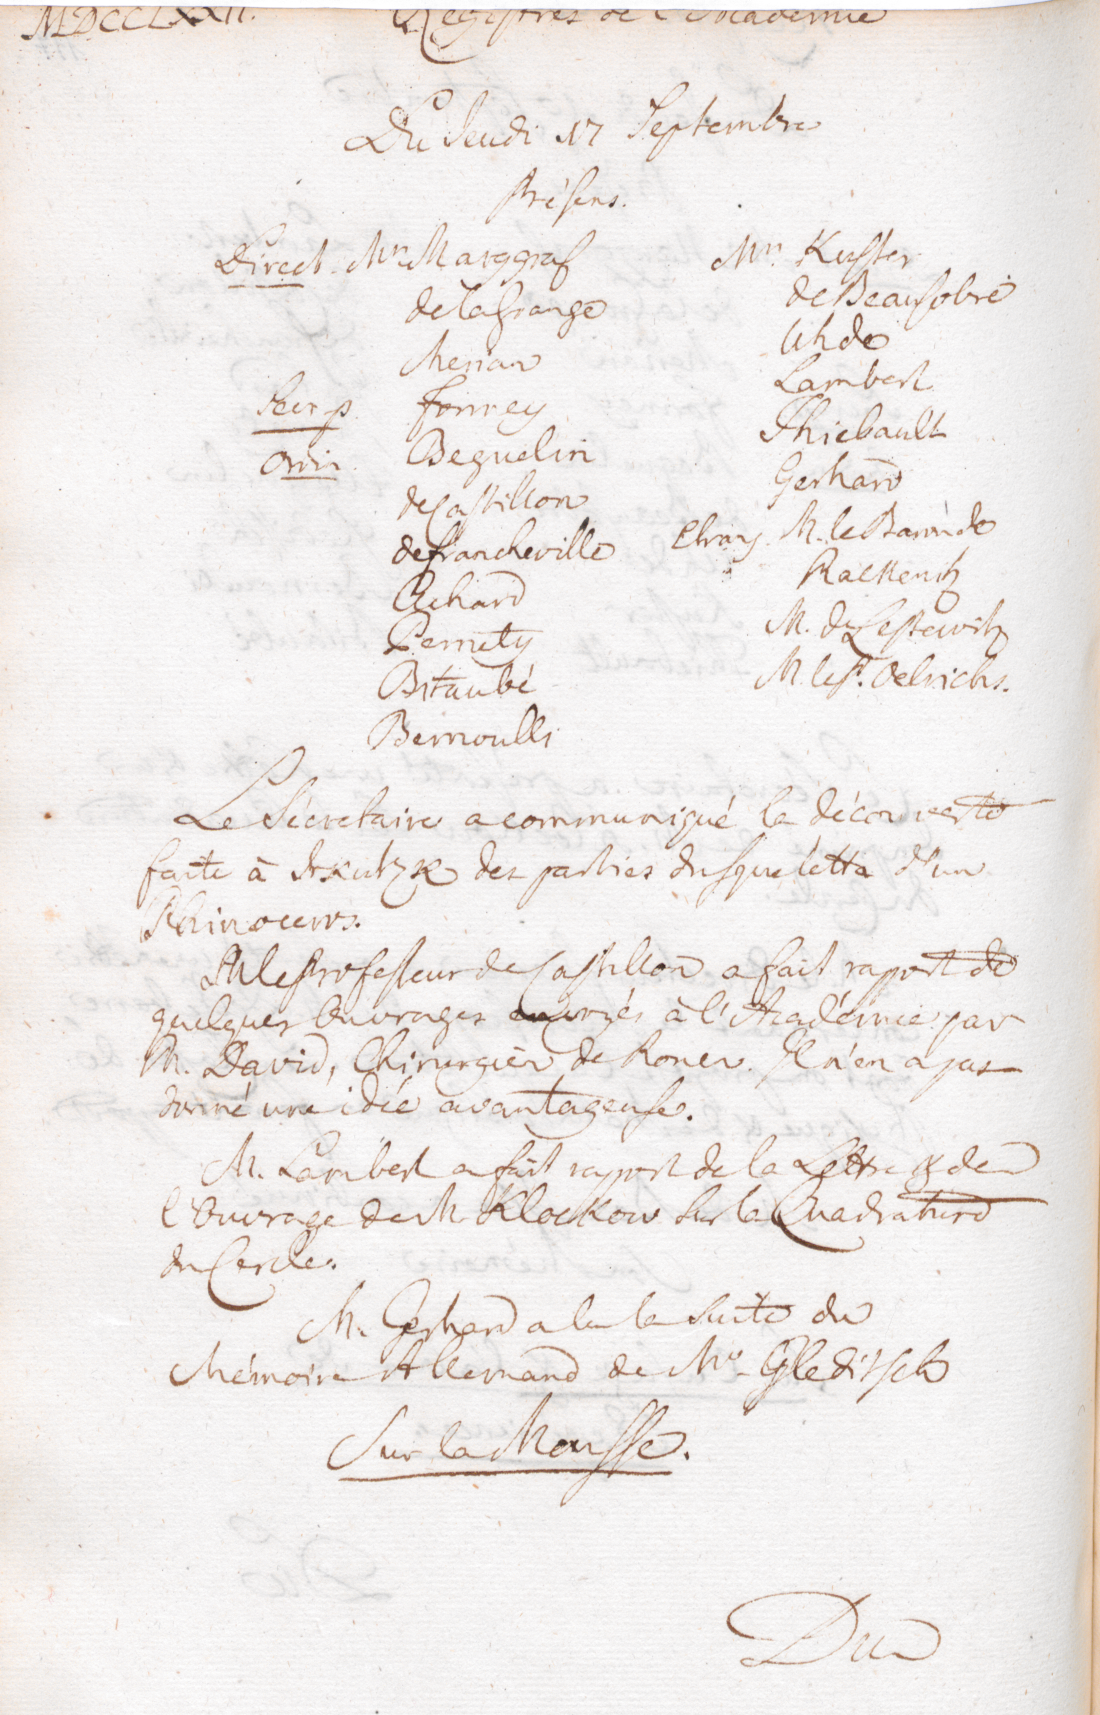 MDCCLXXII. Registres de l'Academie
Du Jeudi 17 Septembre
Présens.
Direct. Mrs Marggraf
de la Grange
Merian
Secr. p. Formey
Ordin. Beguelin
de Castillon
de Francheville
Achard
Pernety
Bitaubé
Bernoulli
Mrs. Kuster
de Beausobre
Uhde
Lambert
Thiebault
Gerhard
Etrang. M. le Baron de
Racknitz
M. de Lestewitz
M. le Pr. Oelrichs.
Le Sécretaire a communiqué la découverte
faite à des parties du squelette d'un
Rhinoceros.
M le Professeur de Castillon a fait rapport de
quelques Ouvrages envoyés à l'Académie par
M. David, Chirurgien de Rouen. Il n'en a pas
donné une idée avantageuse.
M. Lambert a fait rapport de la Lettre & de
l'Ouvrage de M Klockow sur la Quadrature
du Cercle.
M. Gerhard a lu la suite du
Mémoire Allemand de Mr. Gleditsch
Sur la Mousse.
Du